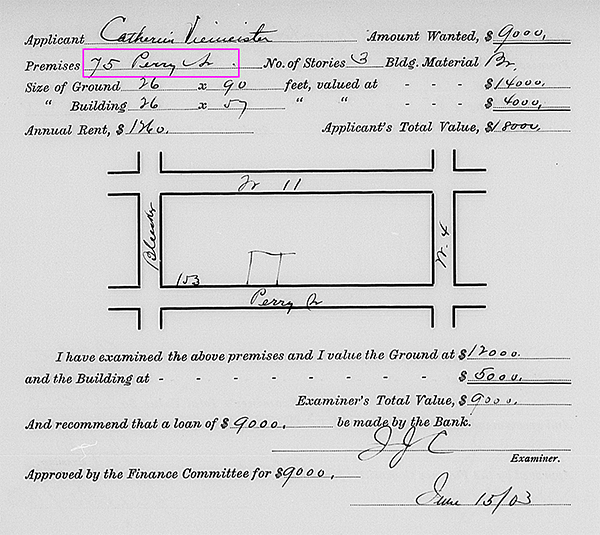 Applicant Catherine Viemeister Amount Wanted, $ 9000,
Premises 75 Perry St. No. of Stories 3 Bldg. Material Br.
Size of Ground 26 x 90 feet, valued at - - - $14000
" Building 26 x 57 " " - - - $ 4000,
Annual Rent, $ 1260. Applicant's Total Value, $18000,
W 11
Bleecker
W. 4
153
Perry St
I have examined the above premises and I value the Ground at $12000.
and the Building at - - - - - - - - $ 5000.
Examiner's Total Value, $ 9000.
And recommend that a loan of $ 9000. be made by the Bank.
J J C
Examiner.
Approved by the Finance Committee for $9000,
June 15/03